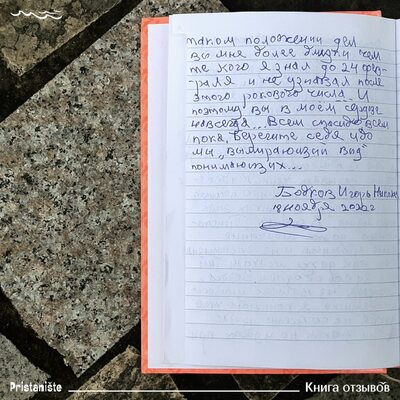 таком положении дел
вы мне более близки чем
те кого я знал до 24 фев-
раля и не узнавал после
этого рокового числа. И
поэтому вы в моём сердце
навсегда... Всем спасибо всем
пока, берегите себя ибо
мы „вымирающий вид"
понимающих...
Бодров Игорь
ноября 2022г
Pristanište
Книга отзывов